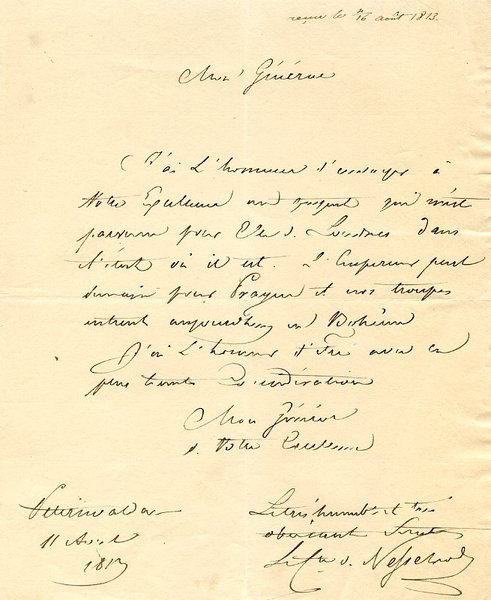 reçue le 16 août 1813.
Mon Général
J'ai l'honneur d'envoyer à
Votre Excellence un paquet qui m'est
parvenu pour Elle de Londres dans
l'état où il est. L'Empereur part
demain pour Prague et nos troupes
entrent aujourd'hui en Bohême
J'ai l'honneur d'être avec la
plus haute Considération
Mon Général
de Votre Excellence
Le très humble et très
obéissant Serviteur
Le Cte de Nesselrode
Peterswaldau
11 Août
1813